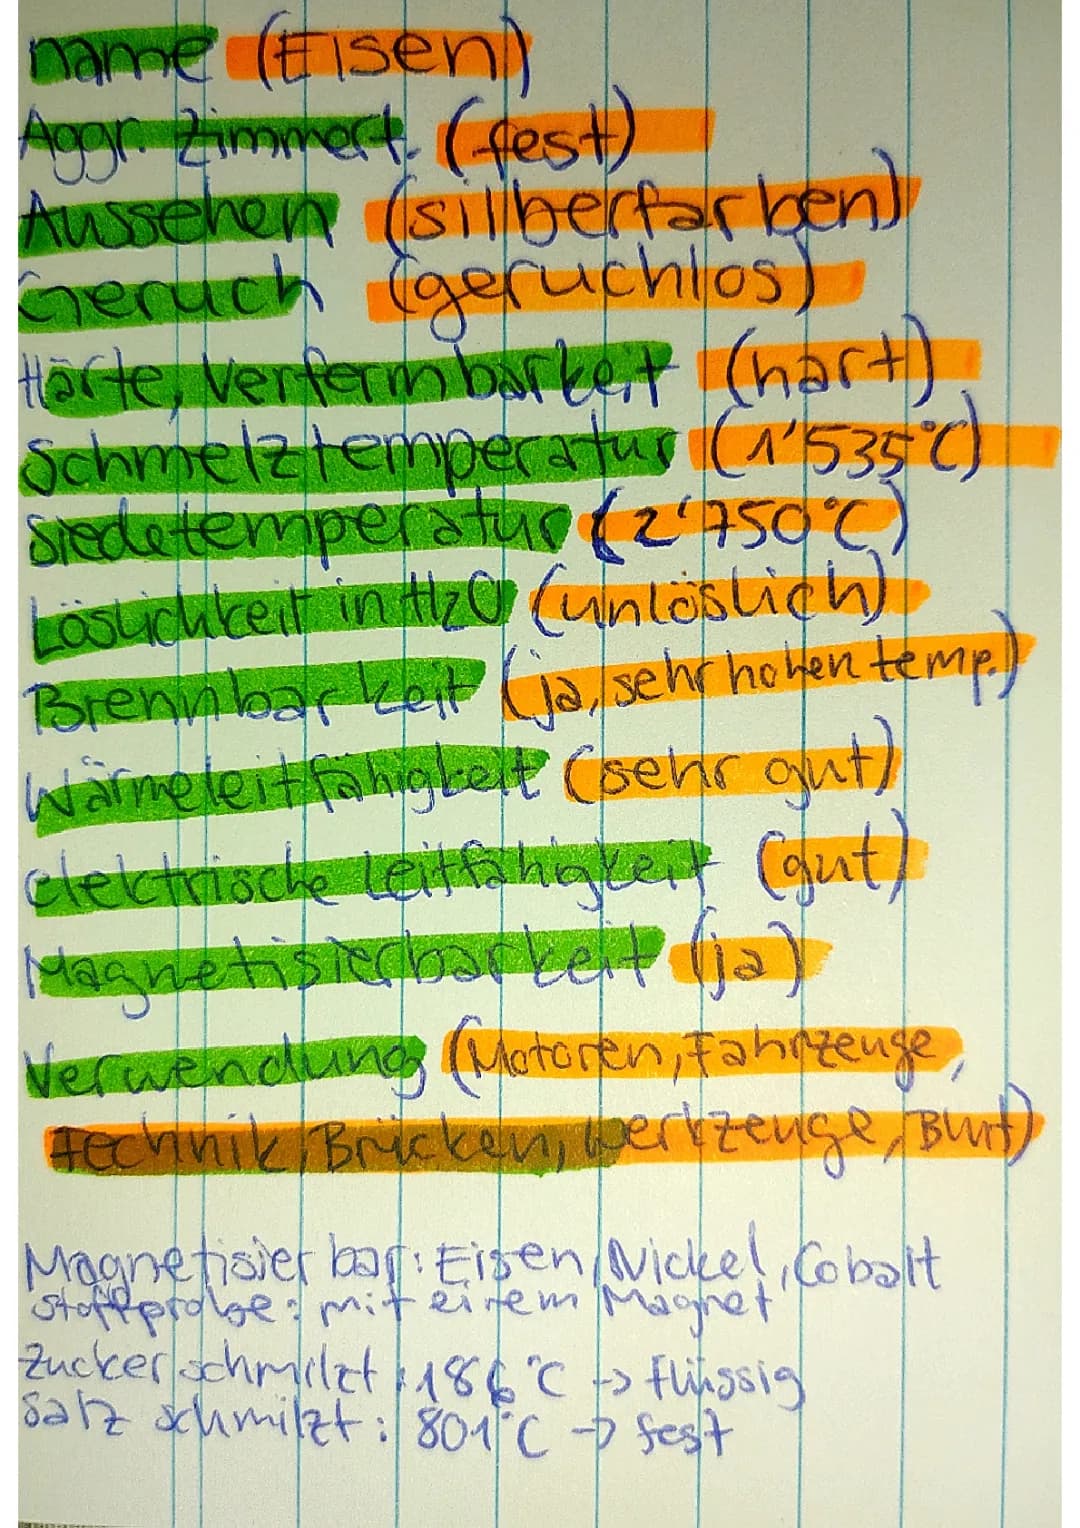 name (Eisen)
Aggr. Zimmert. (fest)
Aussehen (silberfarben)
Geruch (geruchlos)
Härte, Verformbarkeit (hart)
Schmelztemperatur (1'535°C)
Siedetemperatur (2'750°C)
Löslichkeit in H2O (unlöslich)
Brennbarkeit (ja, sehr hohen temp.)
Wärmeleitfähigkeit (sehr gut)
elektrische Leitfähigkeit (gut)
Magnetisierbarkeit (ja)
Verwendung (Motoren, Fahrzeuge,
Technik, Brücken, Werkzeuge, Blut)
Magnetisierbar: Eisen, Nickel, Cobalt
Stoffprobe: mit einem Magnet
Zucker schmilzt: 186°C → flüssig
Salz schmilzt: 801°C → fest